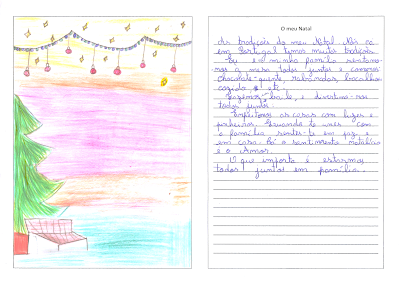 O meu Natal
As tradições do meu Natal. Nós cá
em Portugal temos muitas tradições.
Eu e a minha família sentamo-
nos à mesa todos juntos e comemos
chocolate quente, rabanadas, bacalhau
cozido, etc.
Fazemos, e divertimo-nos
todos juntos.
Enfeitamos as casas com luzes e
com
a família sentir-se em paz e
em casa. Só o sentimento natalício
é o Amor.
O que importa é estarmos
todos juntos em família.